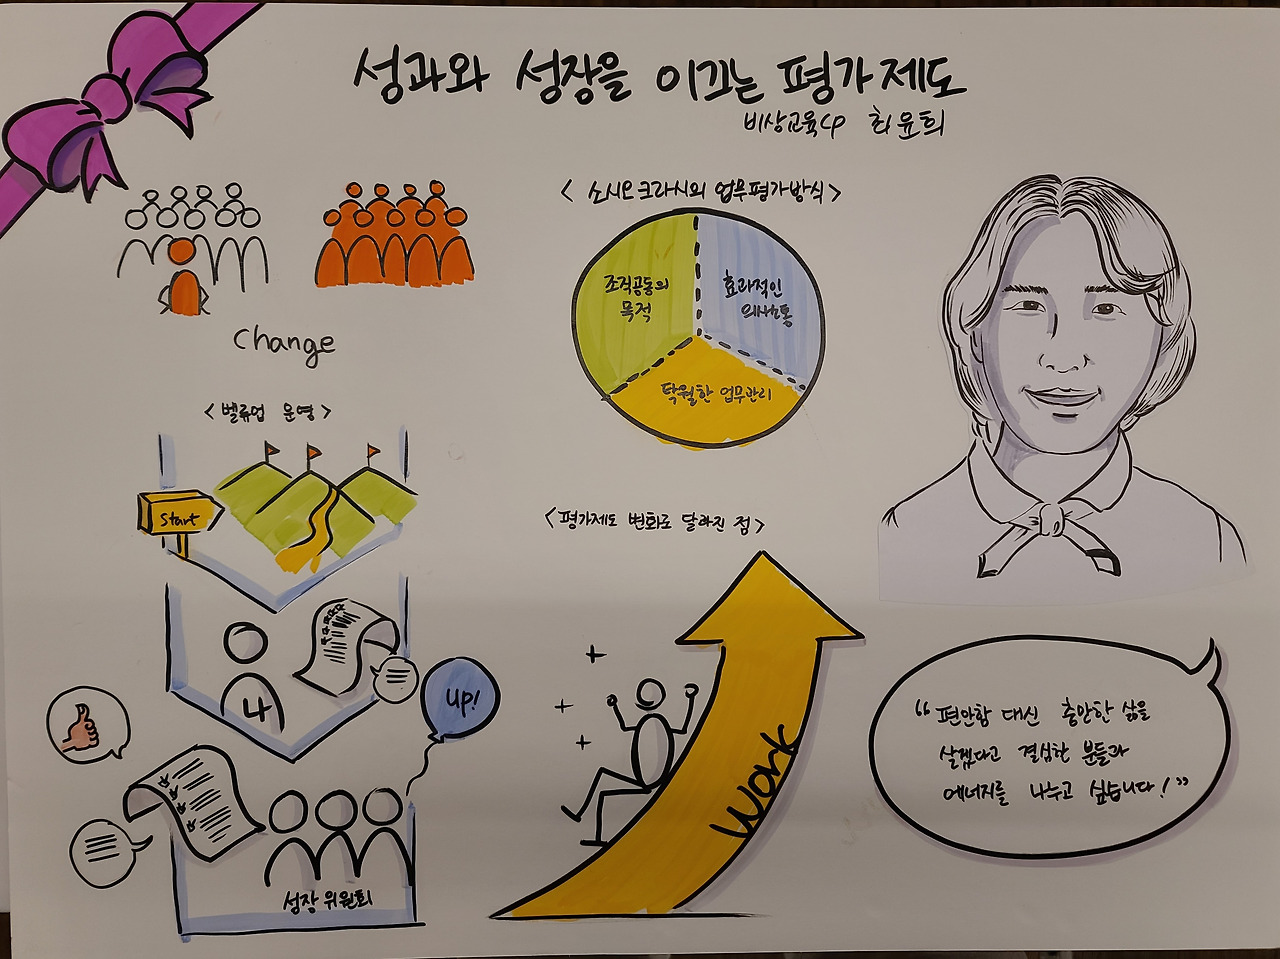 성과와 성장을 이끄는 평가제도
비상교육CP 최윤희
Change
<벨류업 운영>
Start
4
up!
성장 위원회
<소시오크라시의 업무평가방식>
조직공동의
목적
효과적인
의사소통
탁월한 업무관리
<평가제도 변화로 달라진 점>
Work
“편안함 대신 충만한 삶을
살겠다고 결심한 분들과
에너지를 나누고 싶습니다!”